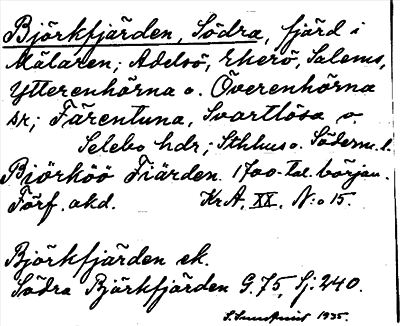 Björkfjärden, Södra, fjärd i
Mälaren; Adelsö, Ekerö, Salems,
Ytterenhörna o. Överenhörna
sr; Färentuna, Svartlösa o.
Selebo hdr; Sthlms o. Söderm. l.
Biörköö Fiärden. 1700-tal. början.
Förf. okd. KrA. XX. N:o 15.
Björkfjärden ek.
Södra Björkfjärden G. 75, Sj: 240.
1935.